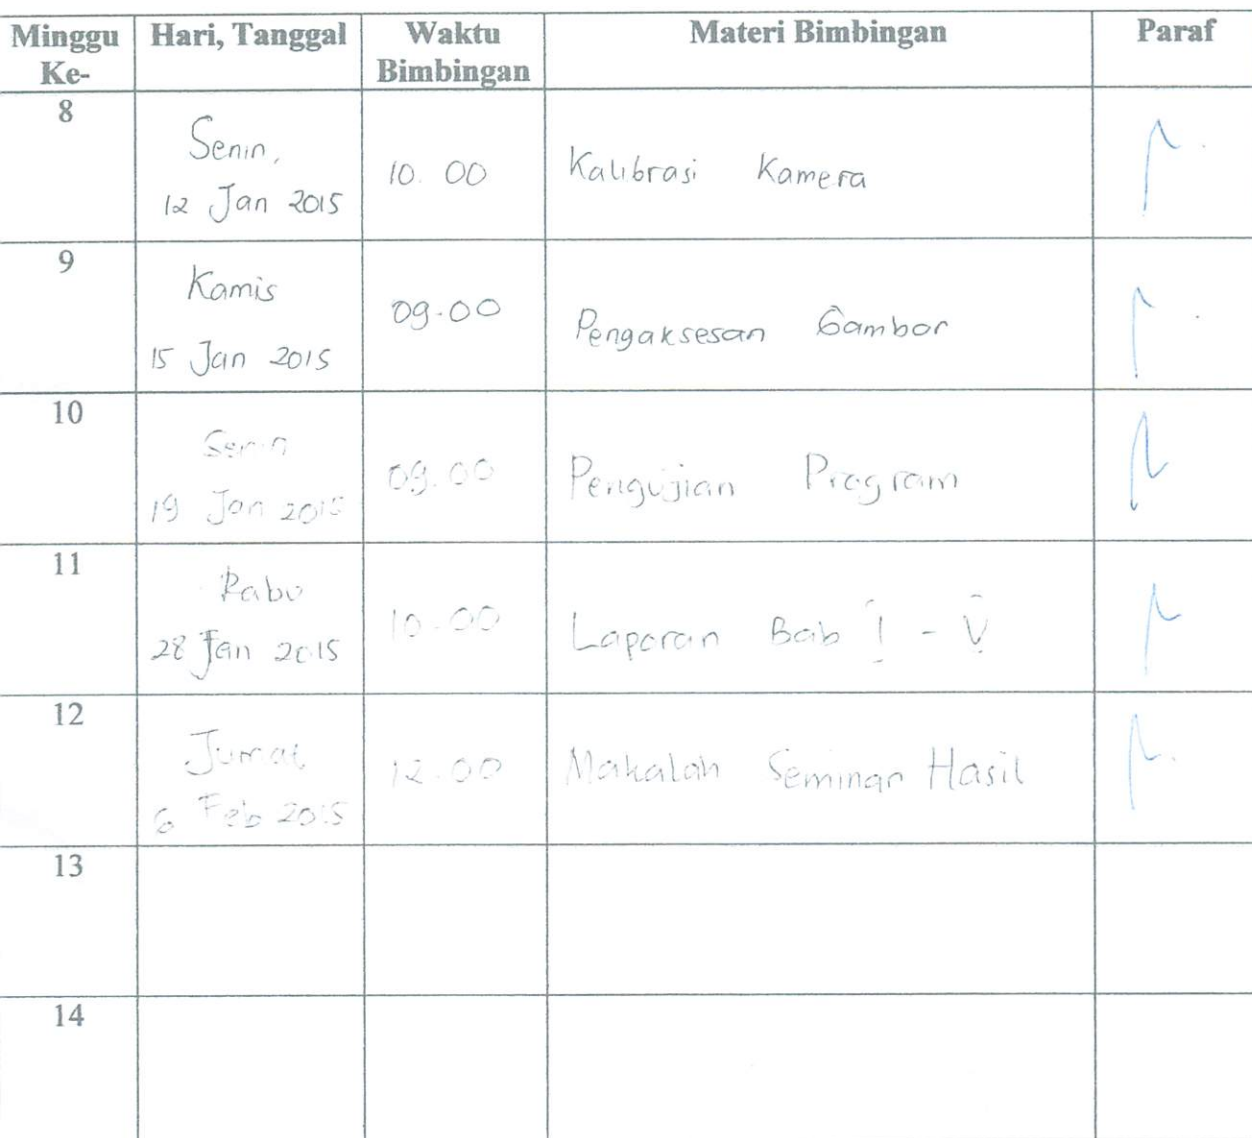 Minggu Ke- Hari, Tanggal Waktu Bimbingan Materi Bimbingan Paraf
8 Senin, 12 Jan 2015 10.00 Kalibrasi Kamera
9 Kamis 15 Jan 2015 09.00 Pengaksesan Gambar
10 Senin 19 Jan 2015 09.00 Pengujian Program
11 Rabu 28 Jan 2015 10.00 Laporan Bab I - V
12 Jumat 6 Feb 2015 12.00 Makalah Seminar Hasil
13
14